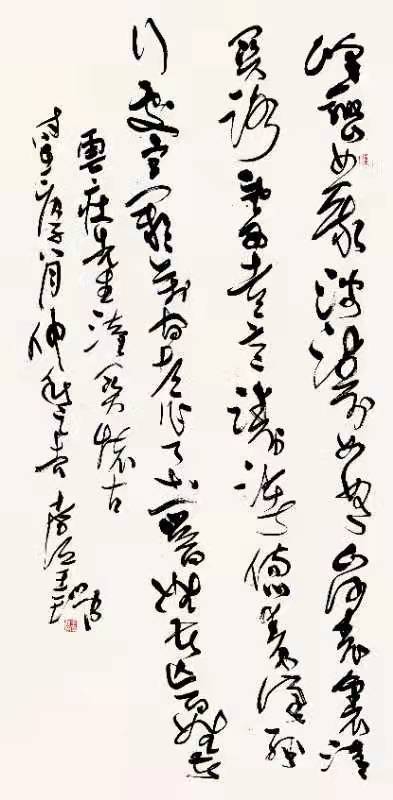 峰巒如聚波濤如怒山河表裏潼
關路望西都意躊躇傷心秦漢經
行處宮闕萬間都作了土興百姓苦亡百姓苦
雲莊先生潼関懷古
八月仲秋